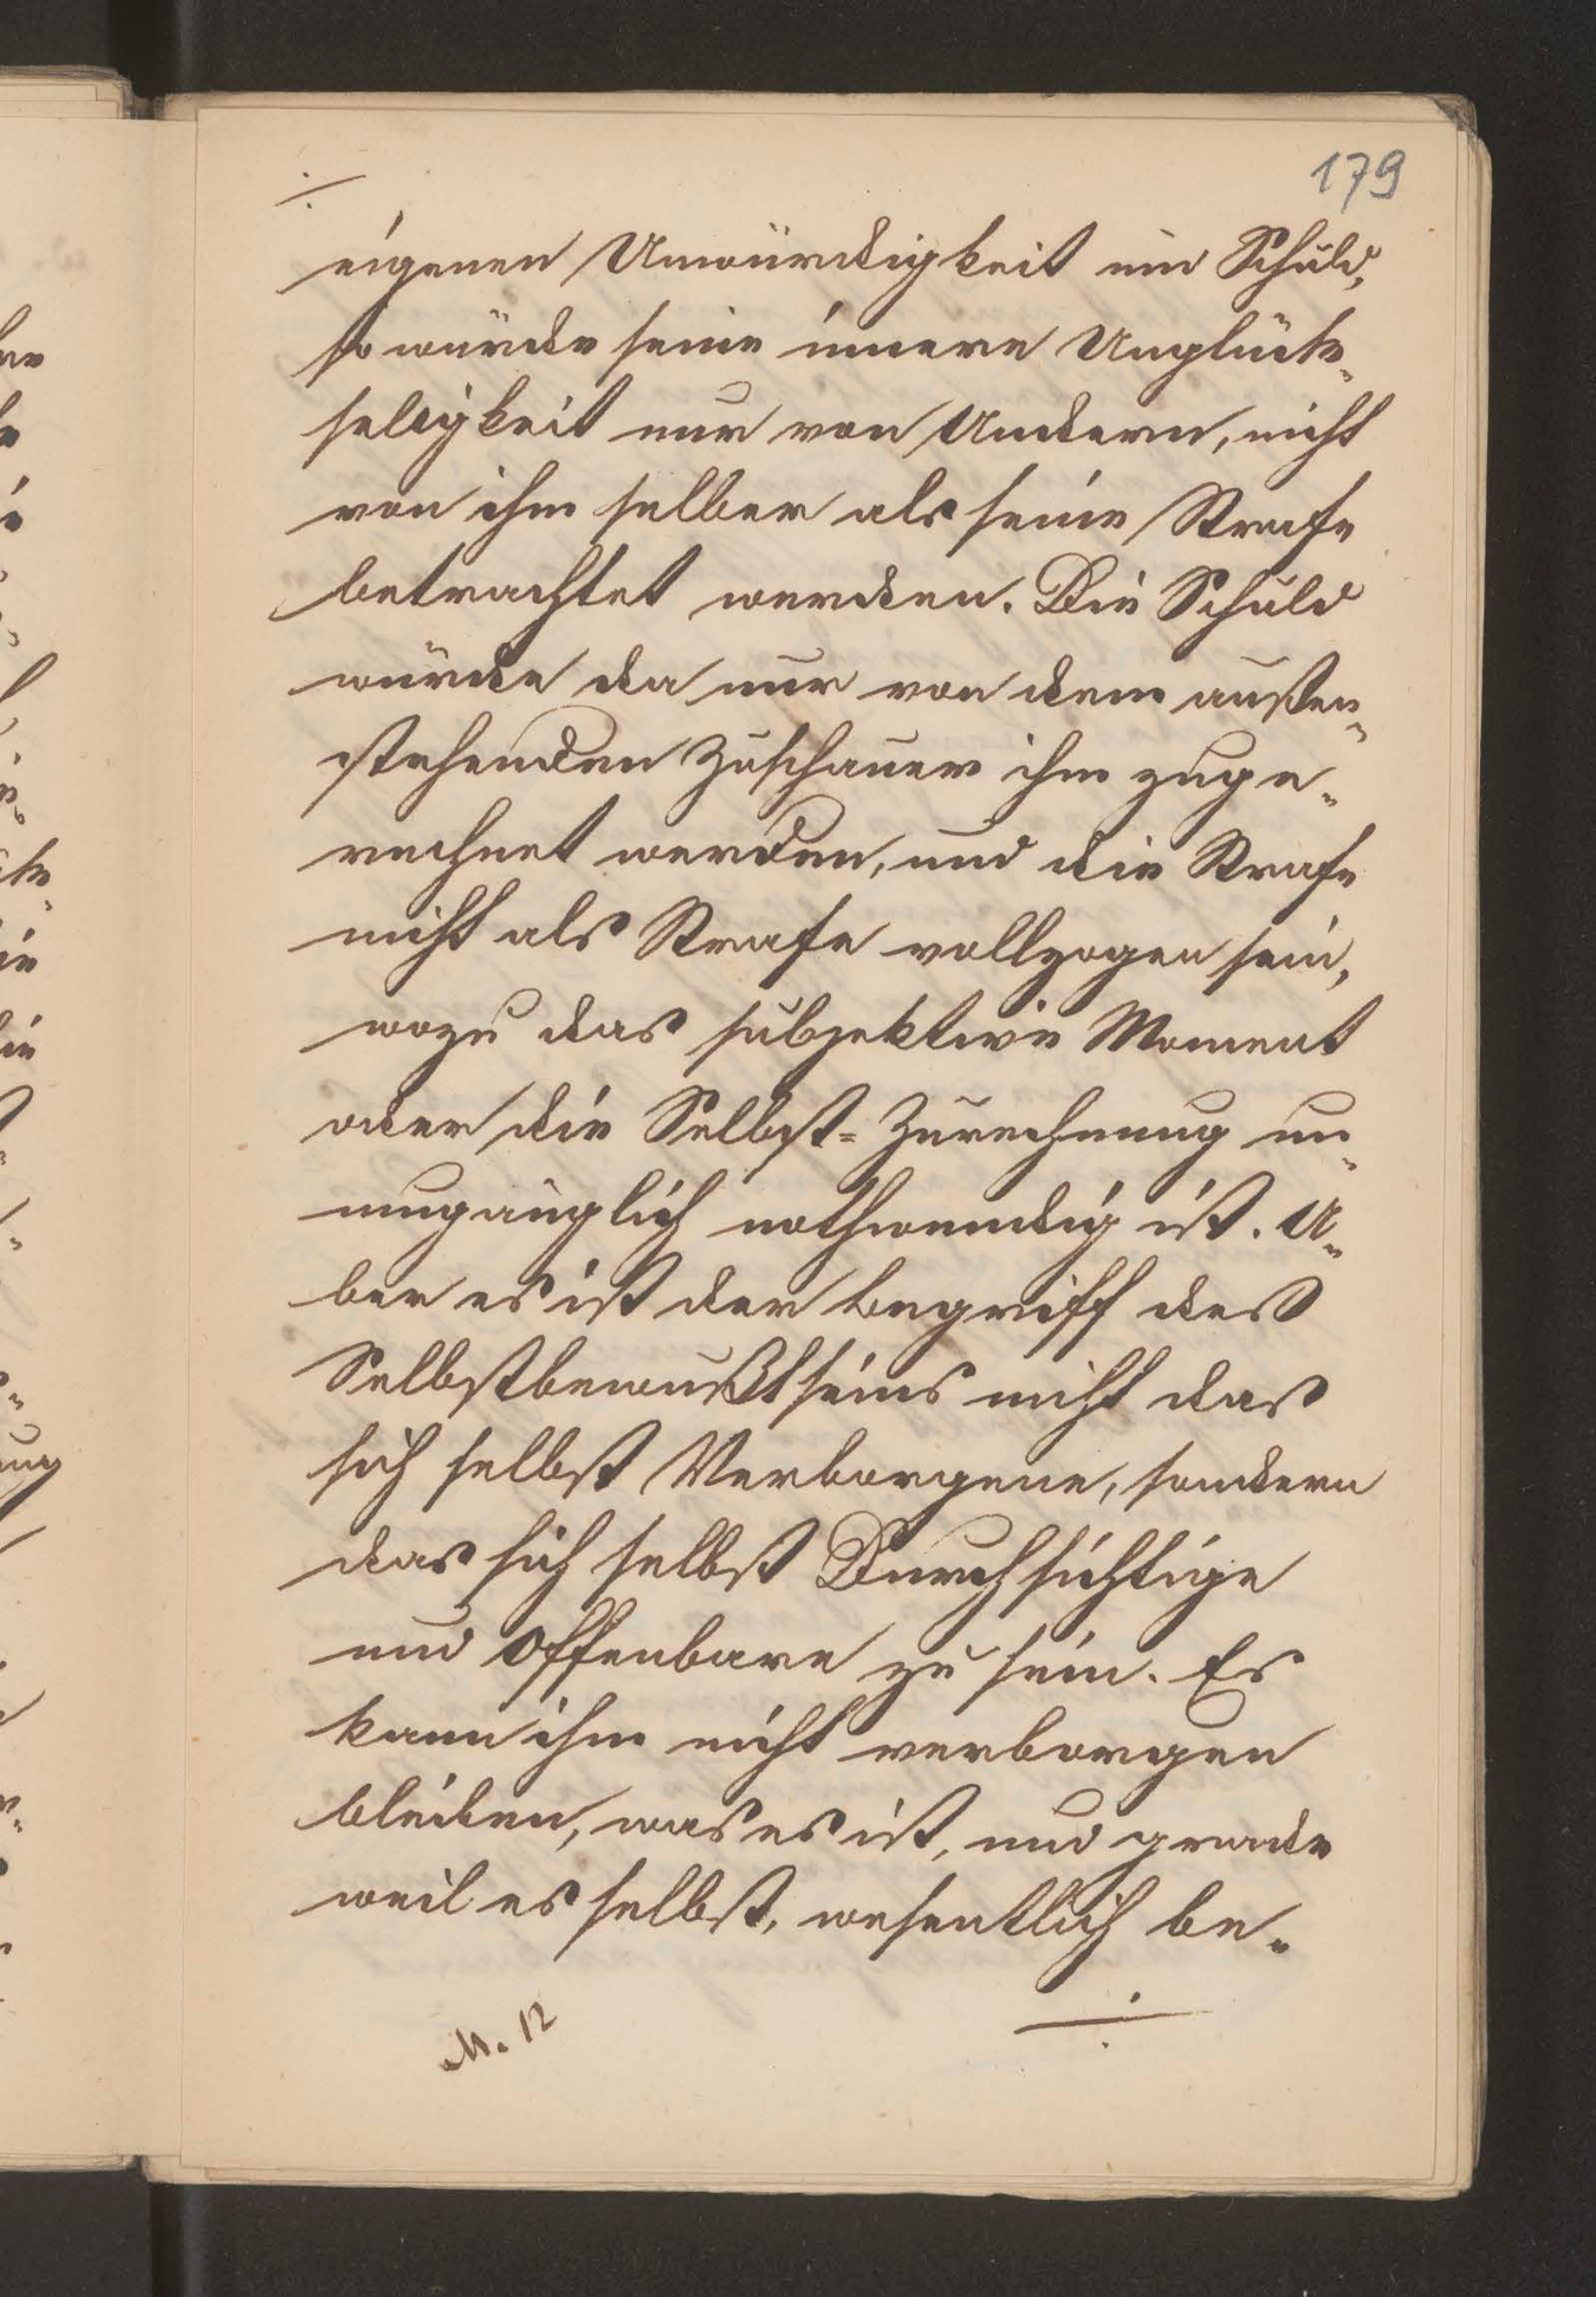 179
./.
eigenen Unwürdigkeit und Schuld,
so würde seine innere Unglück-
seligkeit nur von Andern, nicht
von ihm selber als seine Strafe
betrachtet werden. Die Schuld
würde da nur von dem außen-
stehenden Zuschauer ihm zuge-
rechnet werden, und die Strafe
nicht als Strafe vollzogen sein,
wozu das subjektive Moment
oder die Selbst-Zurechnung un-
umgänglich nothwendig ist. A-
ber es ist der Begriff des
Selbstbewußtseins nicht das
sich selbst Verborgene, sondern
das sich selbst Durchsichtige
und Offenbare zu sein. Es
kann ihm nicht verborgen
bleiben, was es ist, und grade
weil es selbst, wesentlich be-
./.
M. 12